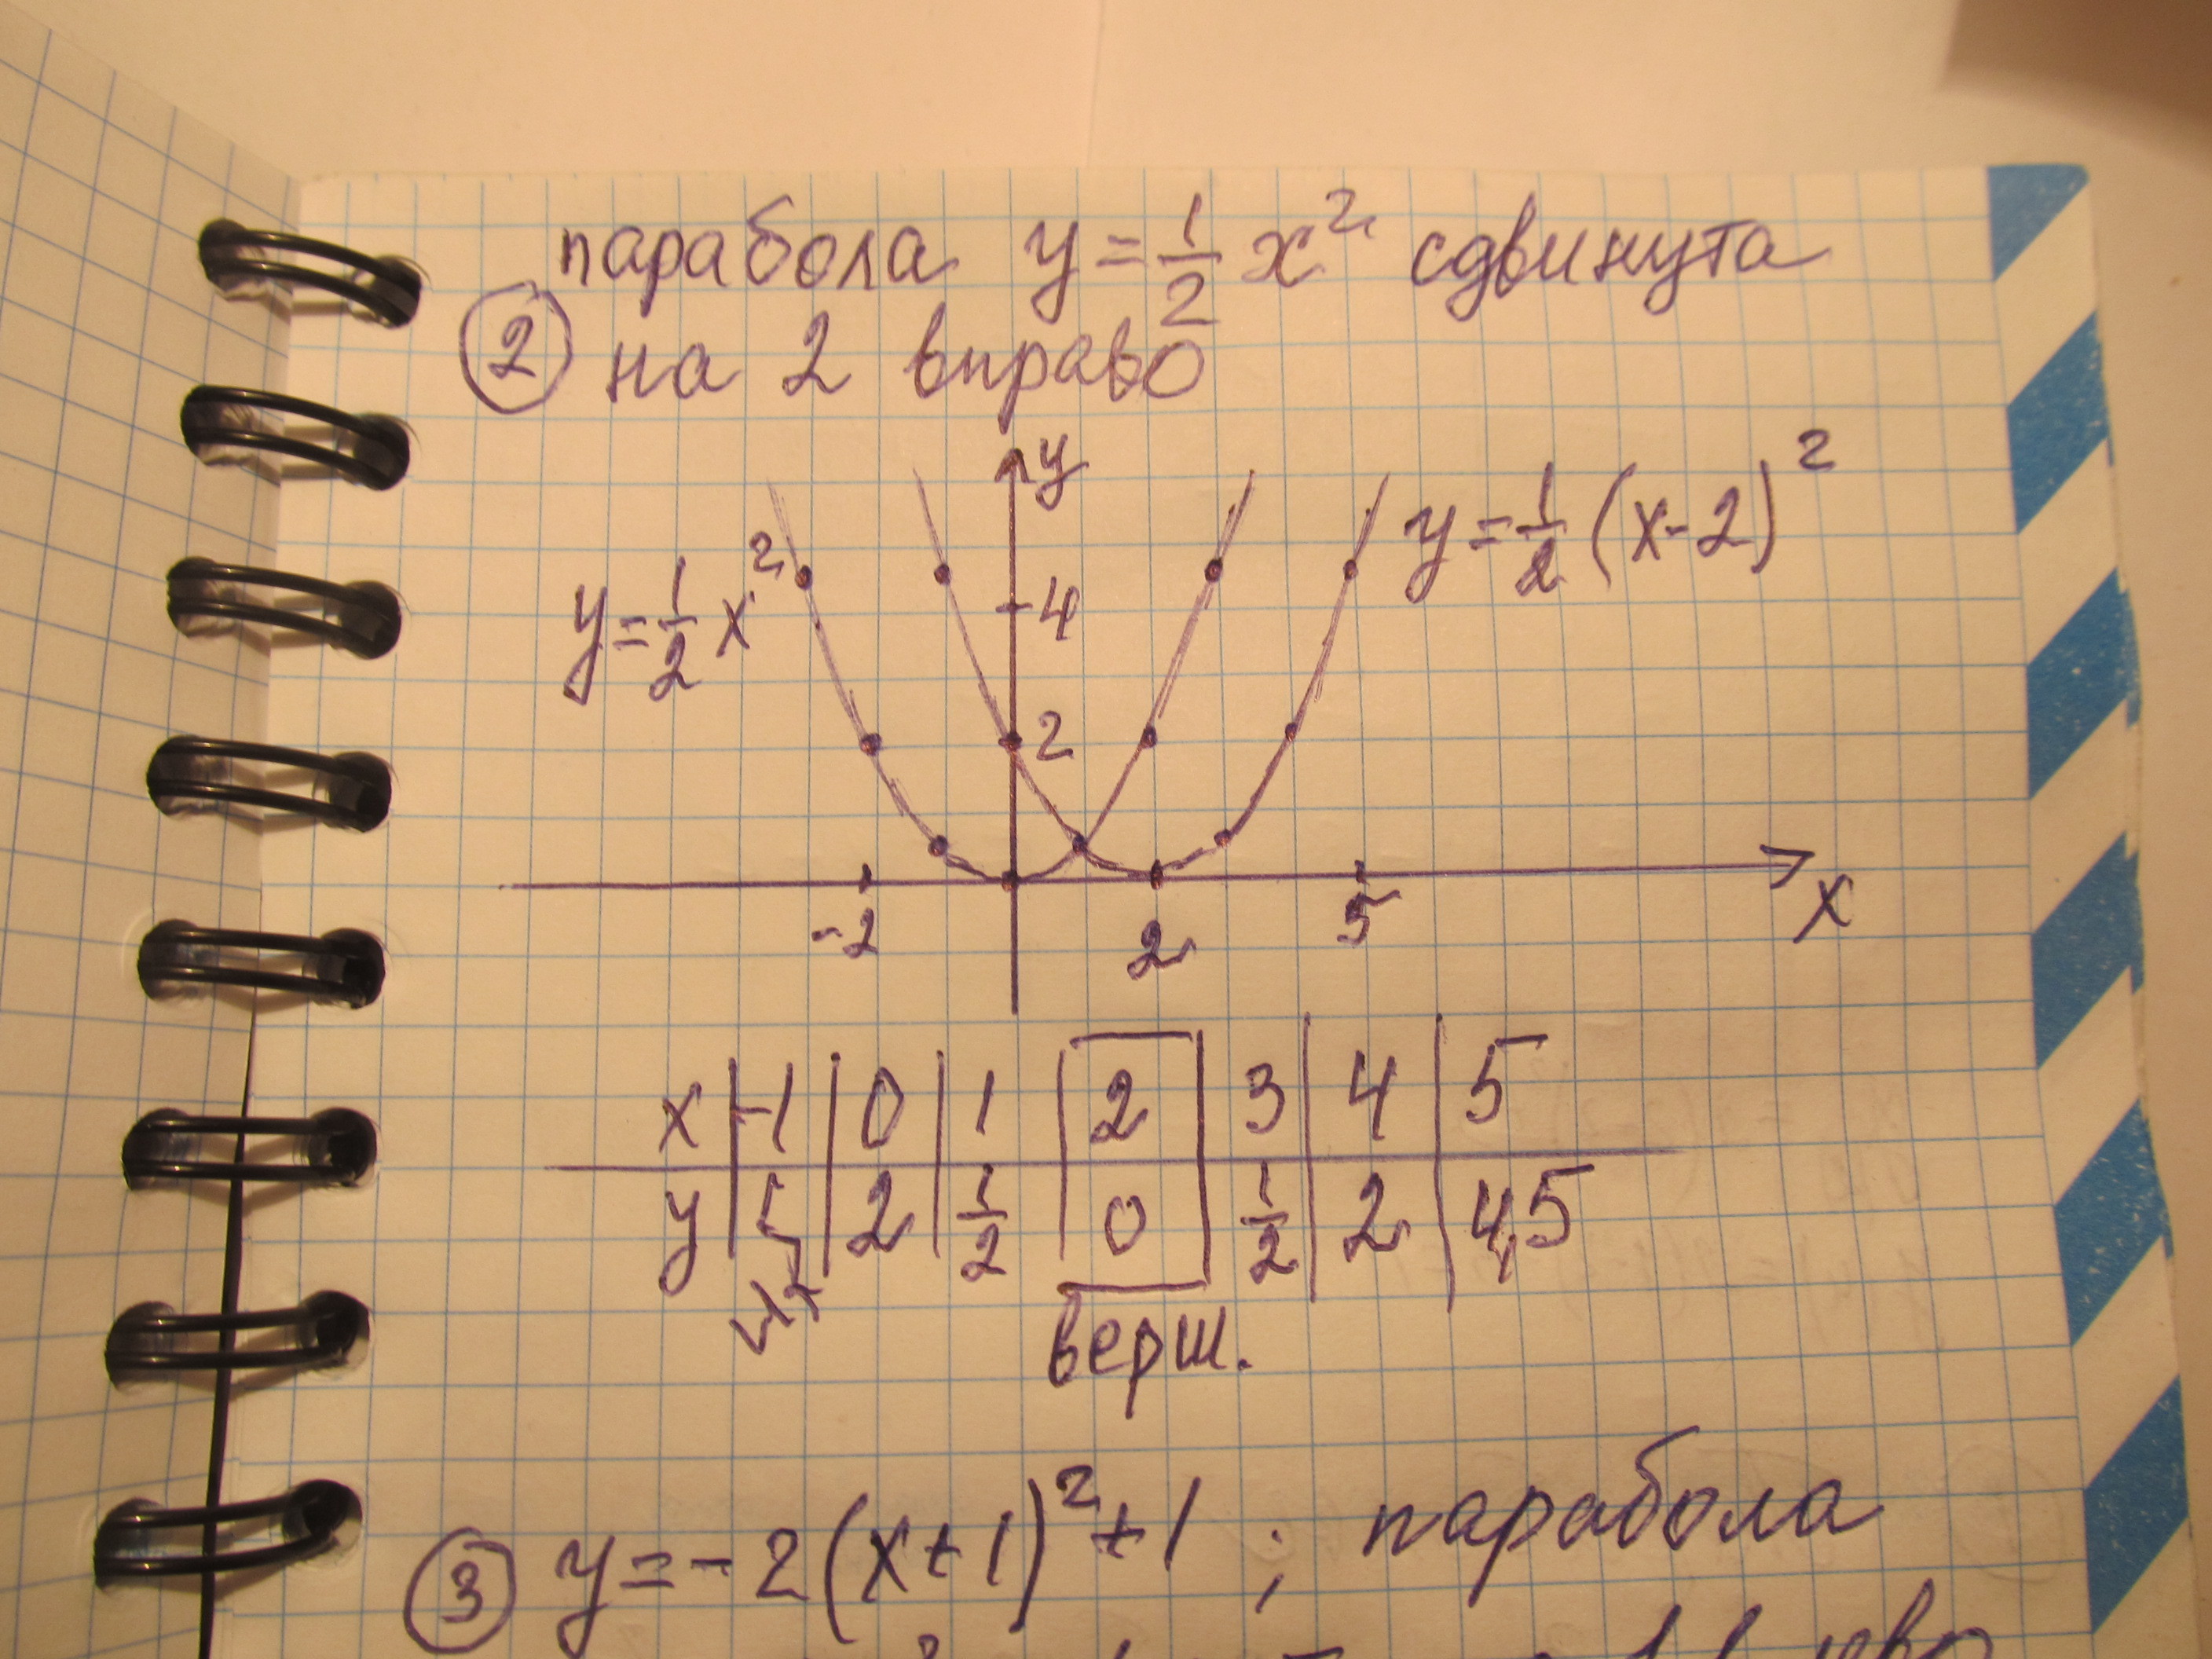 парабола y = 1/2 x² сдвинута
② на 2 вправо
y
y = 1/2 x²
y = 1/2 (x-2)²
4
2
-2 2 5 x
x | -1 | 0 | 1 | 2 | 3 | 4 | 5
y | | 2 | 1/2 | 0 | 1/2 | 2 | 4,5
верш.
③ y = -2(x+1)² + 1 ; парабола